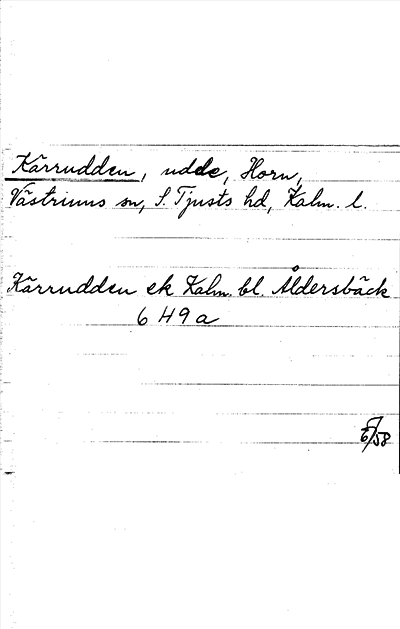 Kärrudden, udde, Horn,
Västrums sn, S. Tjusts hd, Kalm. l.
Kärrudden ek Kalm. bl. Åldersbäck
6 H9a
/58